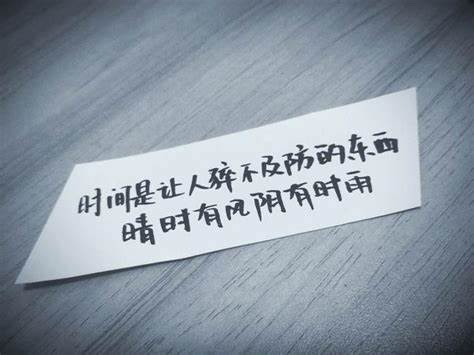 时间是让人猝不及防的东西
晴时有风阴有时雨